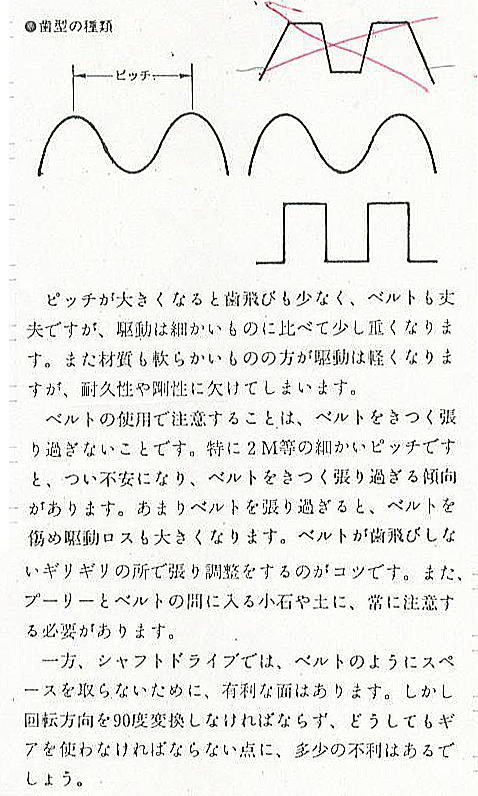 ●歯型の種類
ピッチ
ピッチが大きくなると歯飛びも少なく、ベルトも丈
夫ですが、駆動は細かいものに比べて少し重くなりま
す。また材質も軟らかいものの方が駆動は軽くなりま
すが、耐久性や剛性に欠けてしまいます。
ベルトの使用で注意することは、ベルトをきつく張
り過ぎないことです。特に2M等の細かいピッチです
と、つい不安になり、ベルトをきつく張り過ぎる傾向
があります。あまりベルトを張り過ぎると、ベルトを
傷め駆動ロスも大きくなります。ベルトが歯飛びしな
いギリギリの所で張り調整をするのがコツです。また、
プーリーとベルトの間に入る小石や土に、常に注意す
る必要があります。
一方、シャフトドライブでは、ベルトのようにスペ
ースを取らないために、有利な面はあります。しかし
回転方向を90度変換しなければならず、どうしてもギ
アを使わなければならない点に、多少の不利はあるで
しょう。